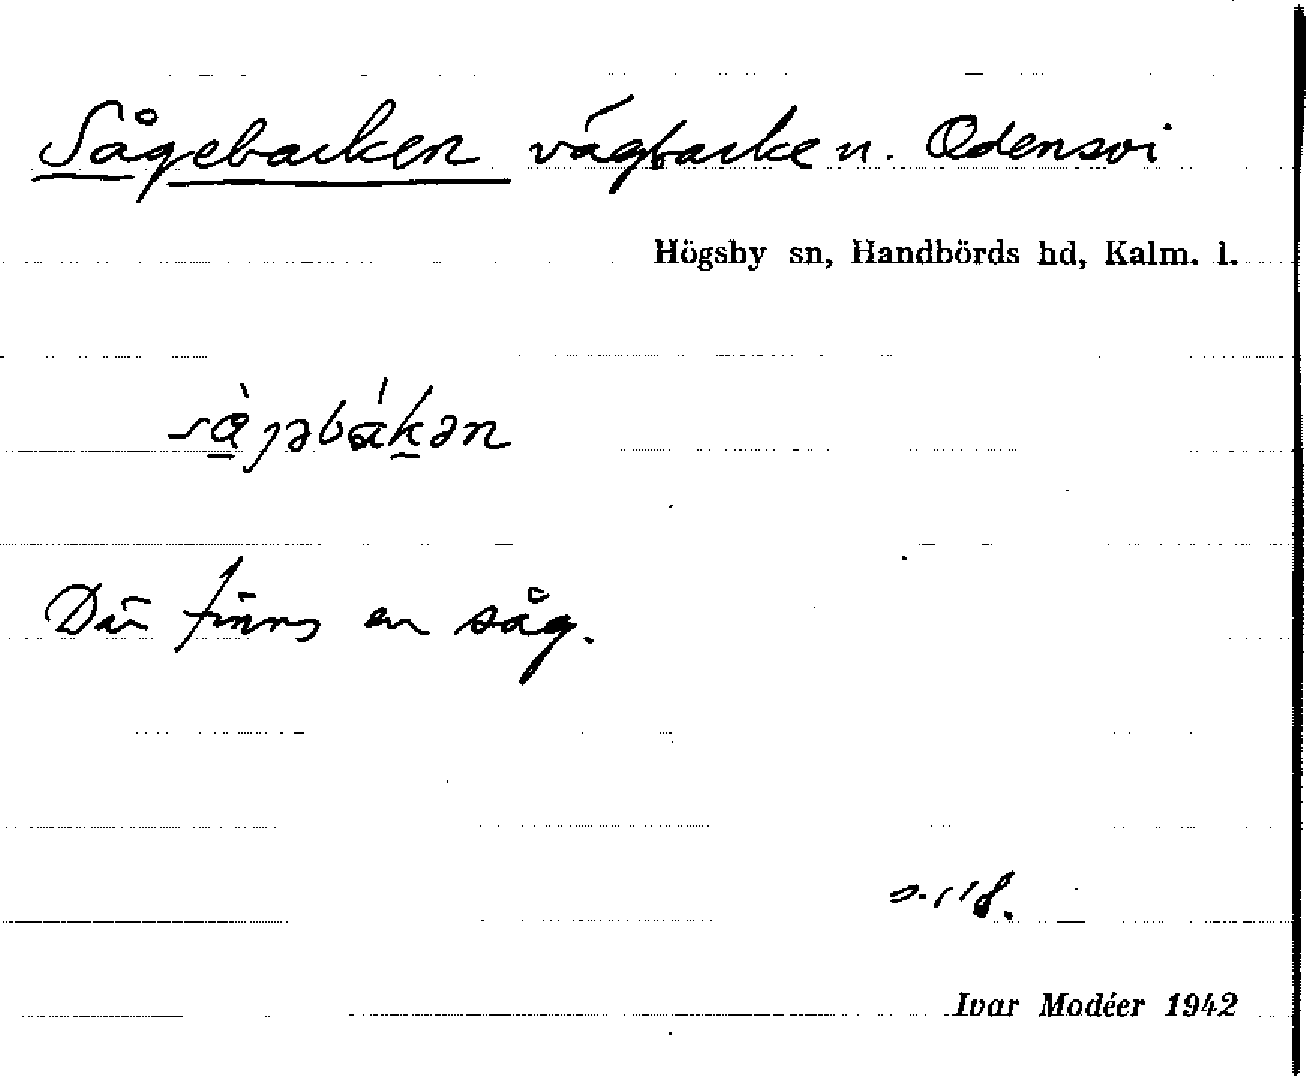 Sågebacken vägbacke n. Odensvi
Högsby sn, Handbörds hd, Kalm. l.
Där finns en såg.
s. 118.
Ivar Modéer 1942